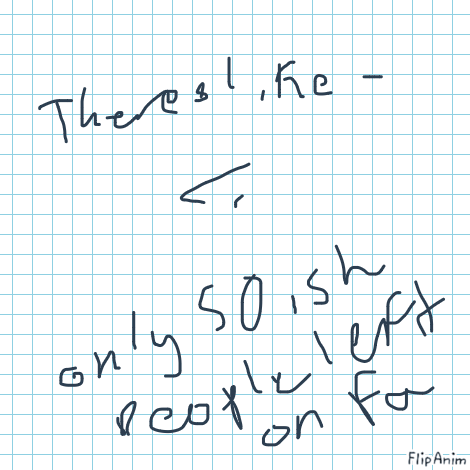 Theres like -
<,
only 50 ish
people left
on FA
FlipAnim